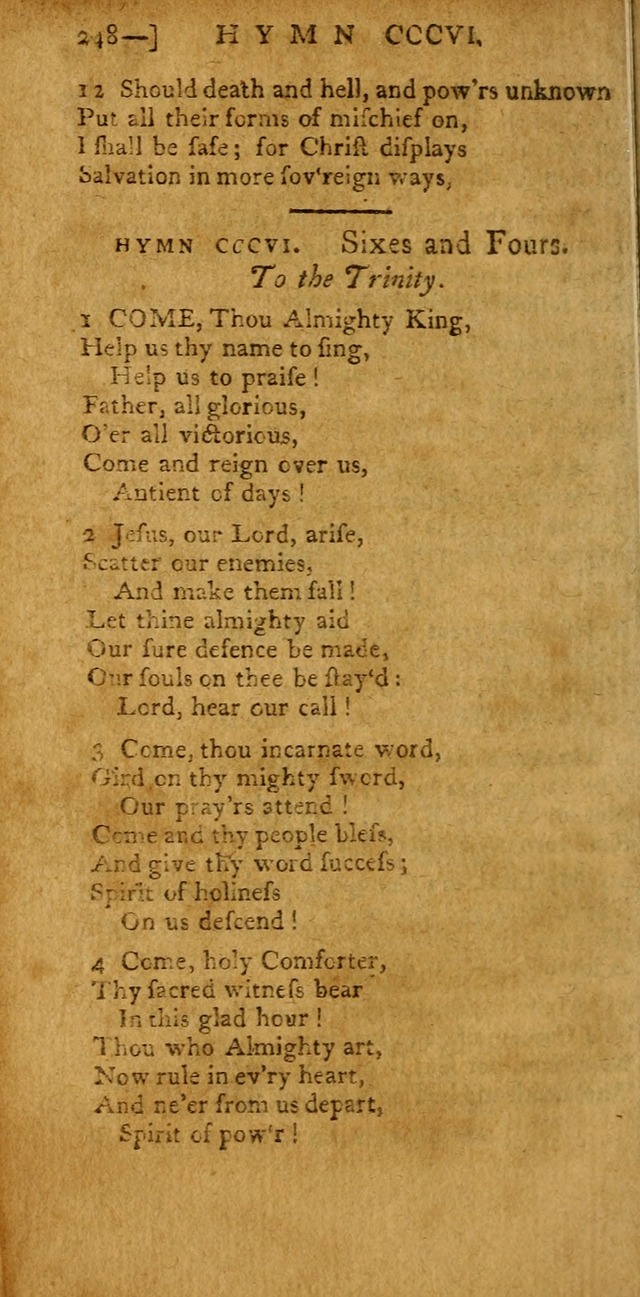 248—] HYMN CCCVI.
12 Should death and hell, and pow'rs unknown
Put all their forms of miſchief on,
I ſhall be ſafe; for Chriſt diſplays
Salvation in more ſov‘reign ways,
HYMN CCCVI. Sixes and Fours.
To the Trinity.
1 COME, Thou Almighty King,
Help us thy name to ſing,
Help us to praiſe!
Father, all glorious,
O'er all victorious,
Come and reign over us,
Antient of days!
2 Jeſus, our Lord, ariſe,
Scatter our enemies,
And make them fall!
Let thine almighty aid
Our ſure defence be made,
Our ſouls on thee be ſtay‘d:
Lord, hear our call!
3 Come, thou incarnate word,
Gird on thy mighty ſword,
Our pray'rs attend!
Come and thy people bleſs,
And give thy word ſucceſs;
Spirit of holineſs
On us deſcend!
4 Come, holy Comforter,
Thy ſacred witneſs bear
In this glad hour!
Thou who Almighty art,
Now rule in ev'ry heart,
And ne'er from us depart,
Spirit of pow‘r!